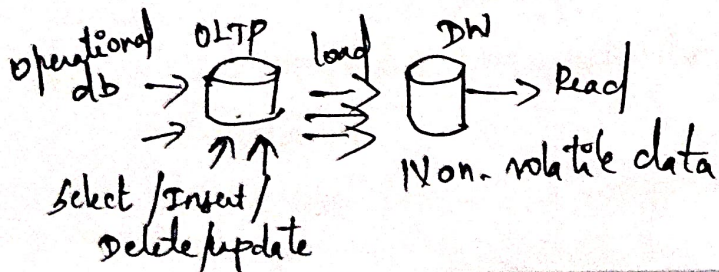 Operational
db
OLTP
load
DW
Read
Non-volatile data
Select / Insert /
Delete/update